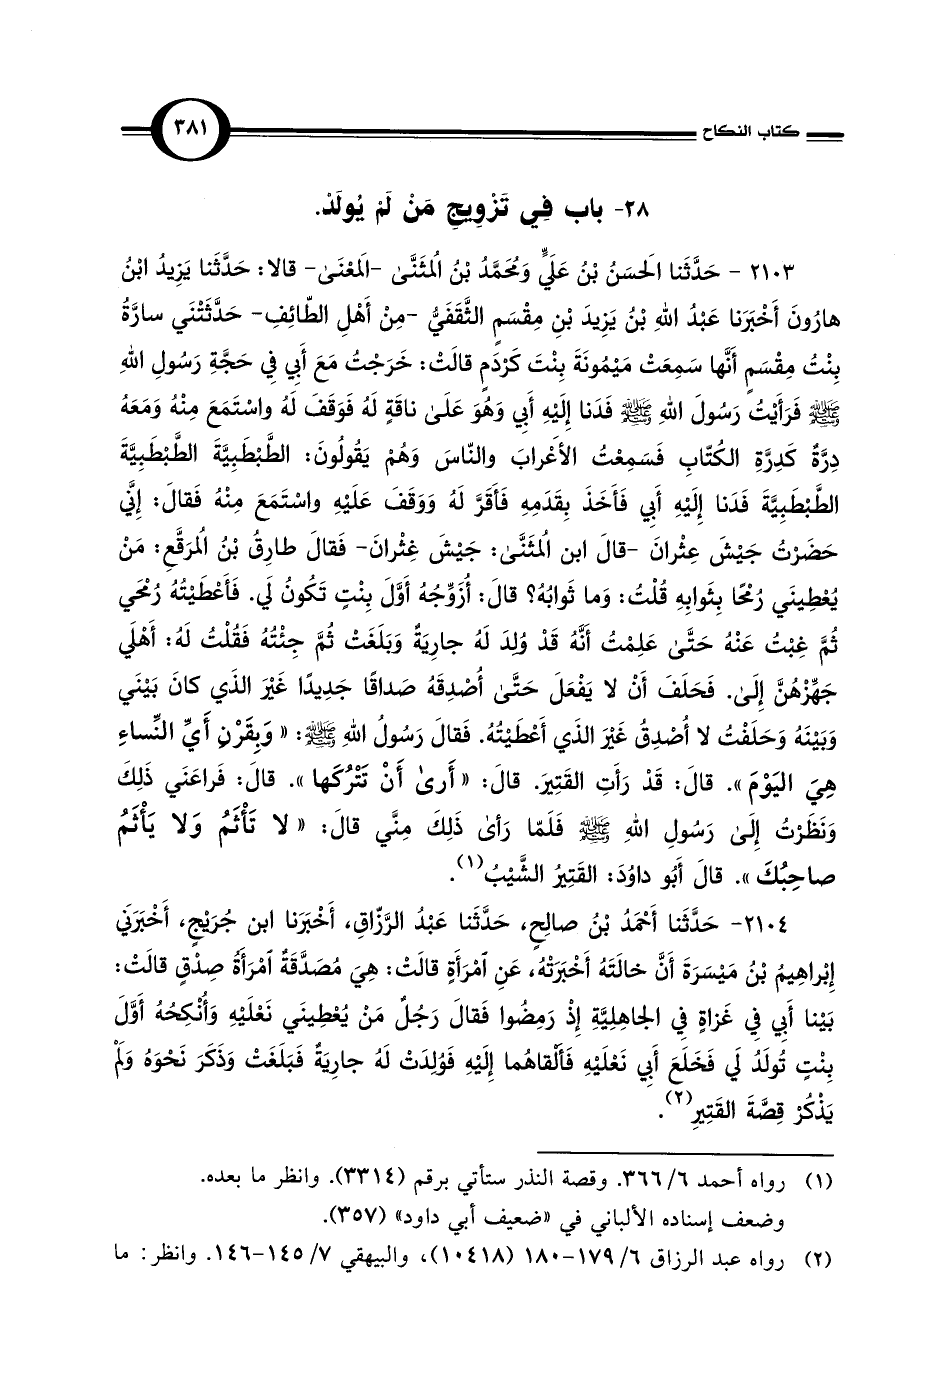 كتاب النكاح ٣٨١
٢٨- باب فِي تَزْوِيجِ مَنْ لَمْ يُولَدْ.
٢١٠٣ - حَدَّثَنا الحَسَنُ بْنُ عَليٍّ وَمُحَمَّدُ بْنُ المُثَنَّى -المَعْنَى- قالا: حَدَّثَنا يَزِيدُ ابْنُ
هارُونَ أَخْبَرَنا عَبْدُ اللهِ بْنُ يَزِيدَ بْنِ مِقْسَمٍ الثَّقَفيُّ -مِنْ أَهْلِ الطّائِفِ- حَدَّثَتْني سارَّةُ
بِنْتُ مِقْسَمٍ أَنَّها سَمِعَتْ مَيْمُونَةَ بِنْتَ كَرْدَمٍ قالَتْ: خَرَجْتُ مَعَ أَبي في حَجَّةِ رَسُولِ اللهِ
ﷺ فَرَأَيْتُ رَسُولَ اللهِ ﷺ فَدَنا إِلَيْهِ أَبي وَهُوَ عَلَى ناقَةٍ لَهُ فَوَقَفَ لَهُ واسْتَمَعَ مِنْهُ وَمَعَهُ
دِرَّةٌ كَدِرَّةِ الكُتّابِ فَسَمِعْتُ الأَعْرابَ والنّاسَ وَهُمْ يَقُولُونَ: الطَّبْطَبِيَّةَ الطَّبْطَبِيَّةَ
الطَّبْطَبِيَّةَ فَدَنا إِلَيْهِ أَبي فَأَخَذَ بِقَدَمِهِ فَأَقَرَّ لَهُ وَوَقَفَ عَلَيْهِ واسْتَمَعَ مِنْهُ فَقالَ: إِنّي
حَضَرْتُ جَيْشَ عِثْرانَ -قالَ ابن المُثَنَّى: جَيْشَ غِثْرانَ- فَقالَ طارِقُ بْنُ المُرَقَّعِ: مَنْ
يُعْطِيني رُمْحًا بِثَوابِهِ قُلْتُ: وَما ثَوابُهُ؟ قالَ: أُزَوِّجُهُ أَوَّلَ بِنْتٍ تَكُونُ لي. فَأَعْطَيْتُهُ رُمْحي
ثُمَّ غِبْتُ عَنْهُ حَتَّى عَلِمْتُ أَنَّهُ قَدْ وُلِدَ لَهُ جارِيَةٌ وَبَلَغَتْ ثُمَّ جِئْتُهُ فَقُلْتُ لَهُ: أَهْلي
جَهِّزْهُنَّ إِلَى. فَحَلَفَ أَنْ لا يَفْعَلَ حَتَّى أُصْدِقَهُ صَداقًا جَدِيدًا غَيْرَ الذي كانَ بَيْني
وَبَيْنَهُ وَحَلَفْتُ لا أُصْدِقُ غَيْرَ الذي أَعْطَيْتُهُ. فَقالَ رَسُولُ اللهِ ﷺ: « وَبِقَرْنِ أَيِّ النِّساءِ
هِيَ اليَوْمَ ». قالَ: قَدْ رَأَتِ القَتِيرَ. قالَ: « أَرىٰ أَنْ تَتْرُكَها ». قالَ: فَراعَني ذَلِكَ
وَنَظَرْتُ إِلَى رَسُولِ اللهِ ﷺ فَلَمّا رَأى ذَلِكَ مِنّي قالَ: « لا تَأْثَمُ وَلا يَأْثَمُ
صاحِبُكَ ». قالَ أَبُو داوُدَ: القَتِيرُ الشَّيْبُ(١).
٢١٠٤- حَدَّثَنا أَحْمَدُ بْنُ صالِحٍ، حَدَّثَنا عَبْدُ الرَّزّاقِ، أَخْبَرَنا ابن جُرَيْجٍ، أَخْبَرَني
إِبْراهِيمُ بْنُ مَيْسَرَةَ أَنَّ خالَتَهُ أَخْبَرَتْهُ، عَنِ امْرَأَةٍ قالَتْ: هِيَ مُصَدَّقَةٌ امْرَأَةُ صِدْقٍ قالَتْ:
بَيْنا أَبي في غَزاةٍ في الجاهِلِيَّةِ إِذْ رَمِضُوا فَقالَ رَجُلٌ مَنْ يُعْطِيني نَعْلَيْهِ وَأُنْكِحُهُ أَوَّلَ
بِنْتٍ تُولَدُ لي فَخَلَعَ أَبي نَعْلَيْهِ فَأَلْقاهُما إِلَيْهِ فَوُلِدَتْ لَهُ جارِيَةٌ فَبَلَغَتْ وَذَكَرَ نَحْوَهُ وَلَمْ
يَذْكُرْ قِصَّةَ القَتِيرِ(٢).
(١) رواه أحمد ٦/ ٣٦٦. وقصة النذر ستأتي برقم (٣٣١٤). وانظر ما بعده.
وضعف إسناده الألباني في «ضعيف أبي داود» (٣٥٧).
(٢) رواه عبد الرزاق ٦/ ١٧٩-١٨٠ (١٠٤١٨)، والبيهقي ٧/ ١٤٥-١٤٦. وانظر: ما